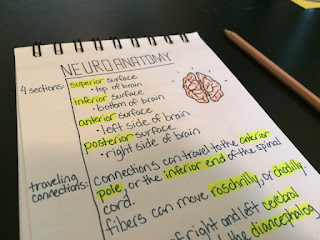 NEUROANATOMY
4 sections: superior surface
• top of brain
inferior surface
• bottom of brain
anterior surface
• left side of brain
posterior surface
• right side of brain
traveling connections: connections can travel to the anterior
pole, or the inferior end of the spinal
cord.
fibers can move roschrilly, or chadilly.
of right and left cerebral
the diancephalog